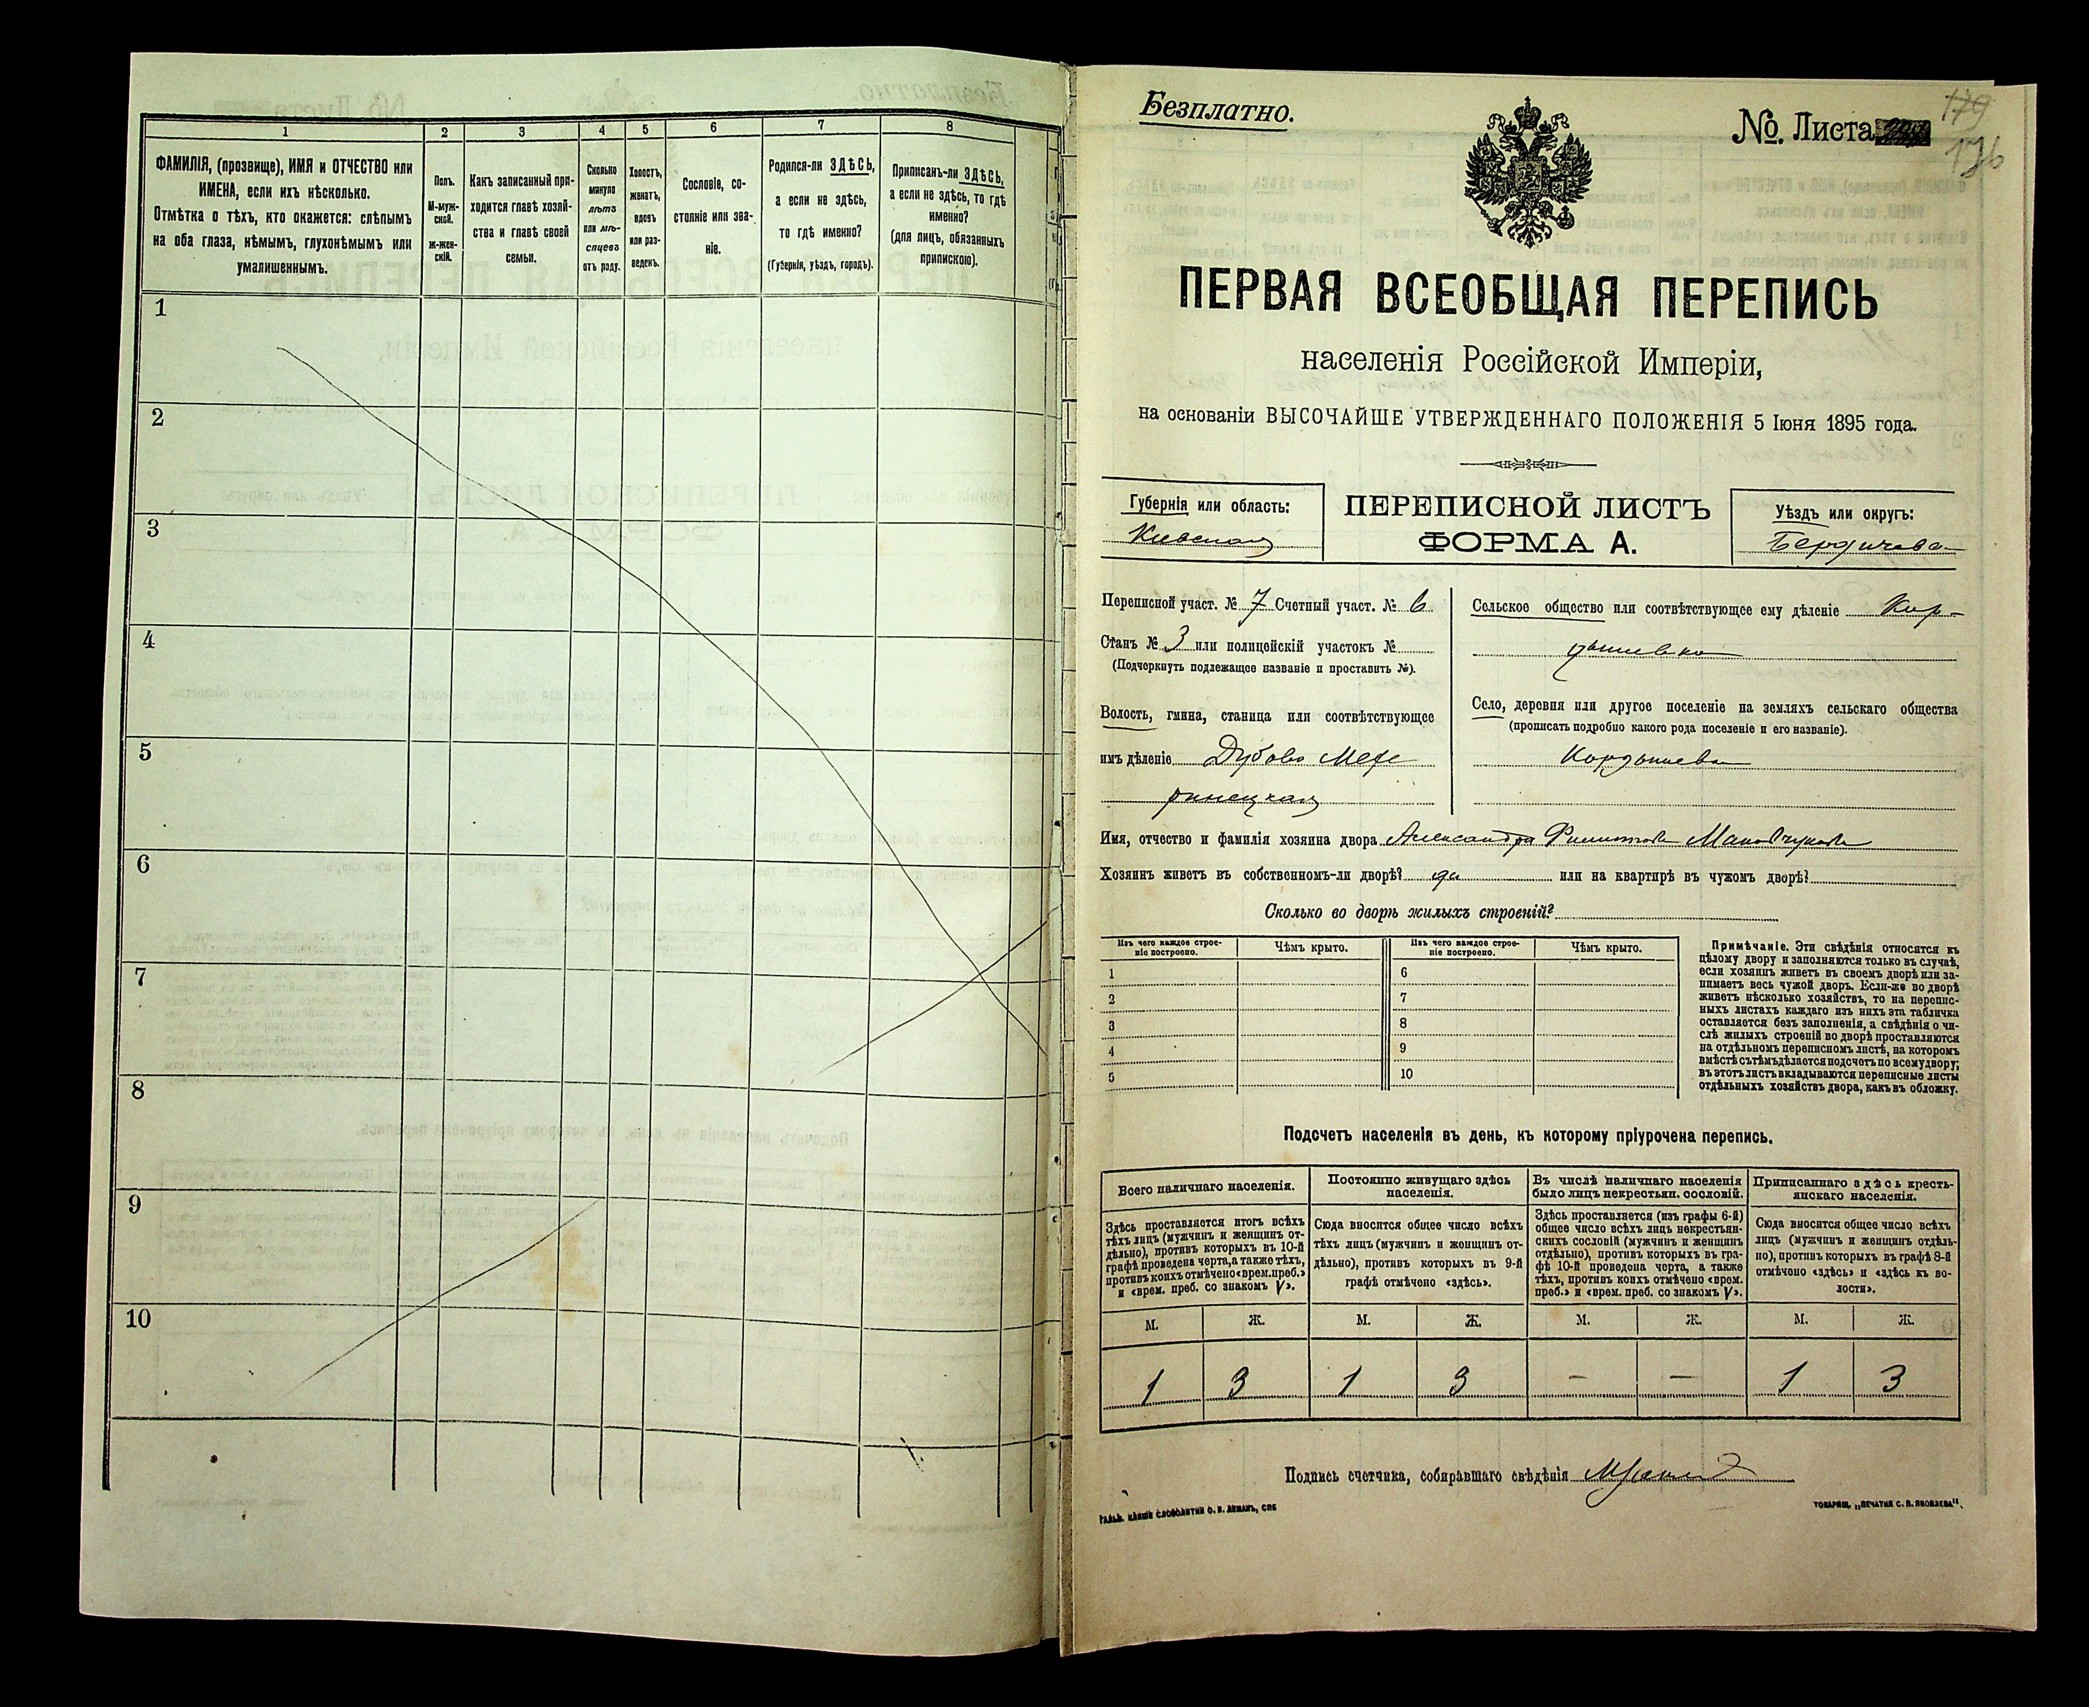 1 2 3 4 5 6 7 8
ФАМИЛІЯ, (прозвище), ИМЯ и ОТЧЕСТВО или
ИМЕНА, если ихъ нѣсколько.
Отмѣтка о тѣхъ, кто окажется: слѣпымъ
на оба глаза, нѣмымъ, глухонѣмымъ или
умалишеннымъ.
Полъ.
М-муж-
ской.
ж-жен-
скій.
Какъ записанный при-
ходится главѣ хозяй-
ства и главѣ своей
семьи.
Сколько
минуло
лѣтъ
или мѣ-
сяцевъ
отъ роду.
Холостъ,
женатъ,
вдовъ
или раз-
веденъ.
Сословіе, со-
стояніе или зва-
ніе.
Родился-ли ЗДѢСЬ,
а если не здѣсь,
то гдѣ именно?
(Губернія, уѣздъ, городъ).
Приписанъ-ли ЗДѢСЬ,
а если не здѣсь, то гдѣ
именно?
(для лицъ, обязанныхъ
припискою).
1
2
3
4
5
6
7
8
9
10
Безплатно.
№ Листа
179
176
ПЕРВАЯ ВСЕОБЩАЯ ПЕРЕПИСЬ
населенія Россійской Имперіи,
на основаніи ВЫСОЧАЙШЕ УТВЕРЖДЕННАГО ПОЛОЖЕНІЯ 5 Іюня 1895 года.
Губернія или область:
Кіевская
ПЕРЕПИСНОЙ ЛИСТЪ
ФОРМА А.
Уѣздъ или округъ:
Бердичевск
Переписной участ. № 7 Счетный участ. № 6
Станъ № 3 или полицейскій участокъ №
(Подчеркнуть подлежащее названіе и проставить №).
Волость, гмина, станица или соотвѣтствующее
имъ дѣленіе Дубово Меже
ринецкая
Сельское общество или соотвѣтствующее ему дѣленіе Кор-
дышевка
Село, деревня или другое поселеніе на земляхъ сельскаго общества
(прописать подробно какого рода поселеніе и его названіе).
Кордышевка
Имя, отчество и фамилія хозяина двора Александра Филиппова
Хозяинъ живетъ въ собственномъ-ли дворѣ? да или на квартирѣ въ чужомъ дворѣ?
Сколько во дворѣ жилыхъ строеній?
Изъ чего каждое строе-
ніе построено.
Чѣмъ крыто.
Изъ чего каждое строе-
ніе построено.
Чѣмъ крыто.
1 6
2 7
3 8
4 9
5 10
Примѣчаніе. Эти свѣдѣнія относятся къ
цѣлому двору и заполняются только въ случаѣ,
если хозяинъ живетъ въ своемъ дворѣ или за-
нимаетъ весь чужой дворъ. Если-же во дворѣ
живетъ нѣсколько хозяйствъ, то на перепис-
ныхъ листахъ каждаго изъ нихъ эта табличка
оставляется безъ заполненія, а свѣдѣнія о чи-
слѣ жилыхъ строеній во дворѣ проставляются
на отдѣльномъ переписномъ листѣ, на которомъ
вмѣстѣ съ тѣмъ дѣлается подсчетъ по всему двору;
въ этотъ листъ вкладываются переписные листы
отдѣльныхъ хозяйствъ двора, какъ въ обложку.
Подсчетъ населенія въ день, къ которому пріурочена перепись.
Всего наличнаго населенія.
Здѣсь проставляется итогъ всѣхъ
тѣхъ лицъ (мужчинъ и женщинъ от-
дѣльно), противъ которыхъ въ 10-й
графѣ проведена черта, а также тѣхъ,
противъ коихъ отмѣчено «врем. преб.»
и «врем. преб. со знакомъ V».
Постоянно живущаго здѣсь
населенія.
Сюда вносится общее число всѣхъ
тѣхъ лицъ (мужчинъ и женщинъ от-
дѣльно), противъ которыхъ въ 9-й
графѣ отмѣчено «здѣсь».
Въ числѣ наличнаго населенія
было лицъ некрестьян. сословій.
Здѣсь проставляется (изъ графы 6-й)
общее число всѣхъ лицъ некрестьян-
скихъ сословій (мужчинъ и женщинъ
отдѣльно), противъ которыхъ въ гра-
фѣ 10-й проведена черта, а также
тѣхъ, противъ коихъ отмѣчено «врем.
преб.» и «врем. преб. со знакомъ V».
Приписаннаго здѣсь кресть-
янскаго населенія.
Сюда вносится общее число всѣхъ
лицъ (мужчинъ и женщинъ отдѣль-
но), противъ которыхъ въ графѣ 8-й
отмѣчено «здѣсь» и «здѣсь къ во-
лости».
М. Ж. М. Ж. М. Ж. М. Ж.
1 3 1 3 — — 1 3
Подпись счетчика, собиравшаго свѣдѣнія
СЛОВОЛИТНИ О. И. ЛЕМАНЪ, СПБ
ТОВАРИЩ. „ПЕЧАТНЯ С. П. ЯКОВЛЕВА".